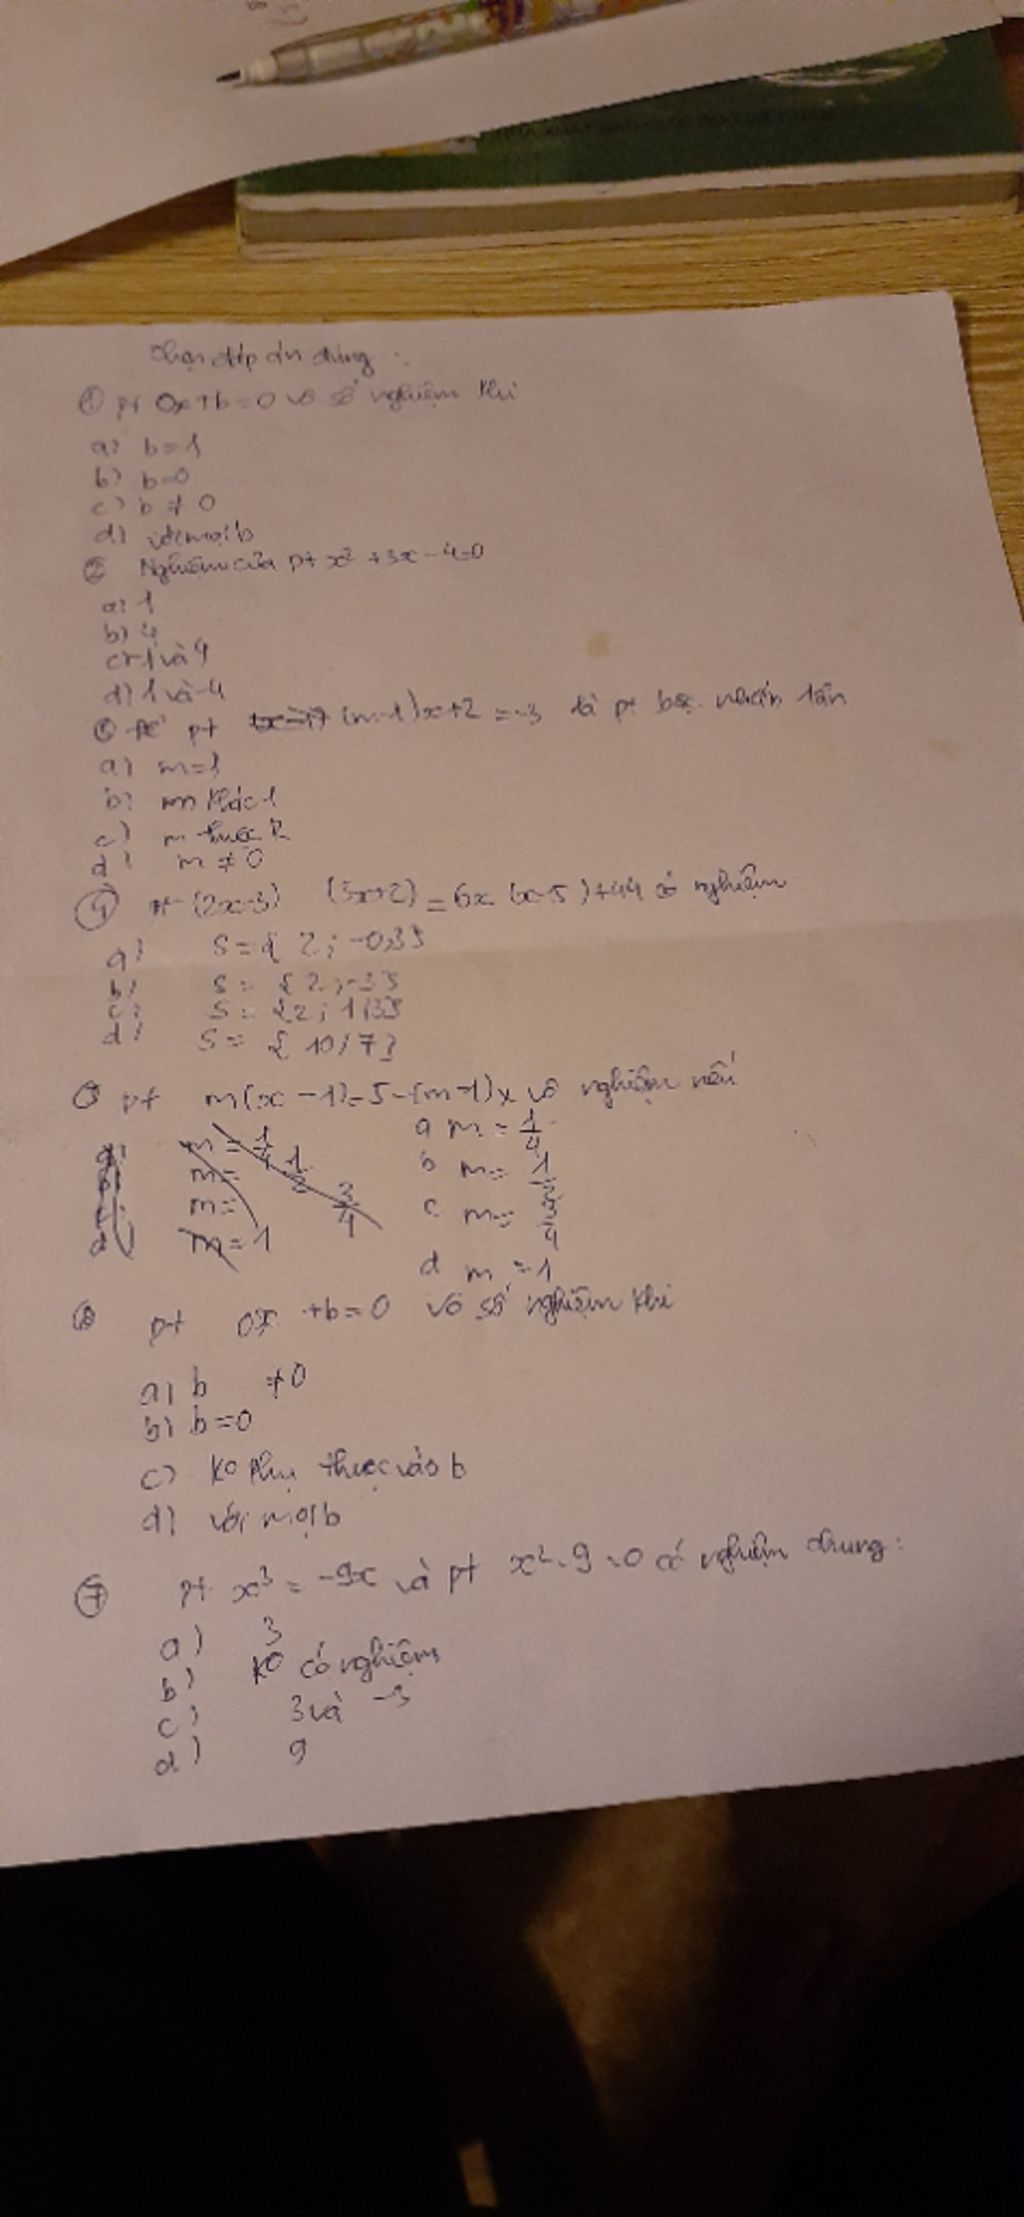 Chọn đáp án đúng :
① pt 0x+b=0 vô số nghiệm khi
a) b=1
b) b=0
c) b ≠ 0
d) với mọi b
② Nghiệm của pt x² +3x-4=0
a) 1
b) 4
c) -1 và 4
d) 1 và -4
③ Để pt (m-1)x+2 =-3 là pt bậc nhất 1 ẩn
a) m=1
b) m khác 1
c) m thuộc R
d) m ≠ 0
④ pt (2x-3) (3x+2) = 6x (x-5)+44 có nghiệm
a) S={ 2; -0,3}
b) S= { 2; -3}
c) S= {2; 1,3}
d) S= { 10/7}
pt m(x-1)=5-(m-1)x vô nghiệm nếu
m= 1/4
m= 1/2
m= 3/4
m=1
a m= 1/4
b m= 1/2
c m= 3/4
d m =1
⑥ pt 0x +b=0 vô số nghiệm khi
a) b ≠0
b) b=0
c) ko phụ thuộc vào b
d) với mọi b
⑦ pt x³ = -9x và pt x²-9=0 có nghiệm chung:
a) 3
b) ko có nghiệm
c) 3 và -3
d) 9